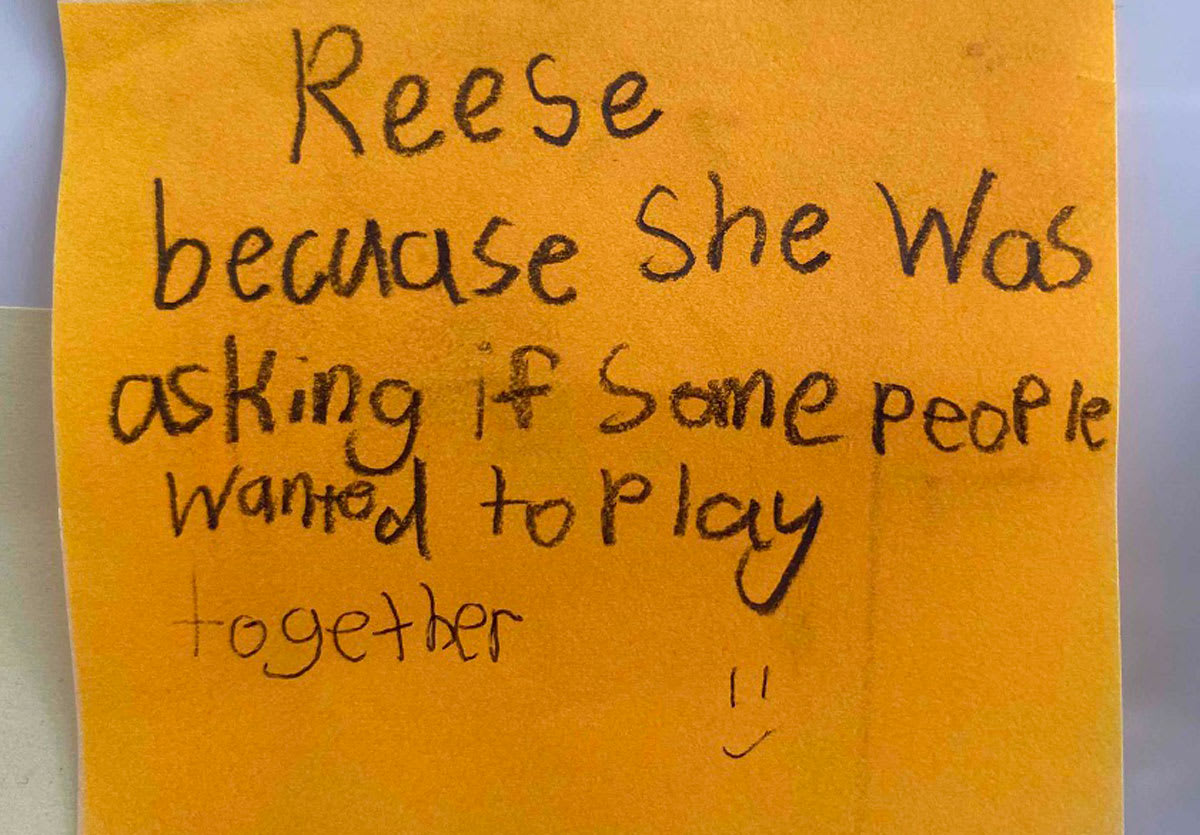 Reese
becuase she was
asking if some people
wanted to play
together